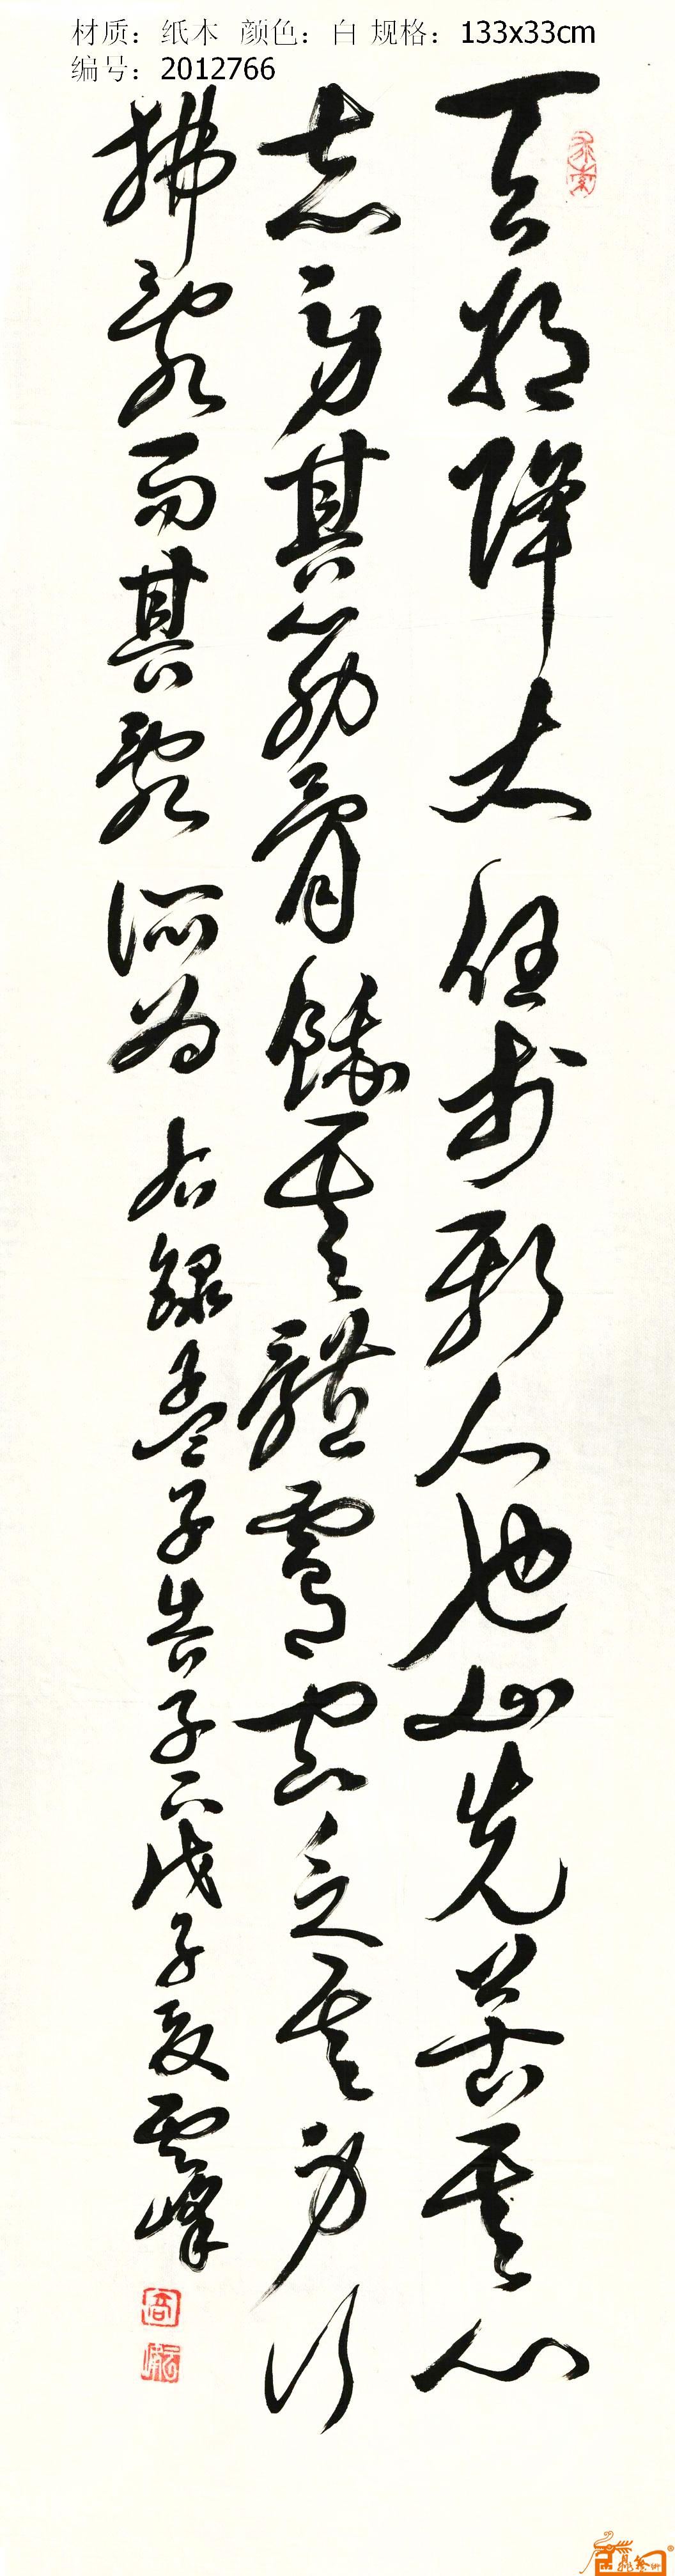 材质：纸本 颜色：白 规格：133x33cm
编号：2012766
天将降大任於斯人也必先苦其心
志劳其筋骨餓其體膚空乏其身行
拂亂而其亂所為 右錄孟子告子下戊子夏雲峰